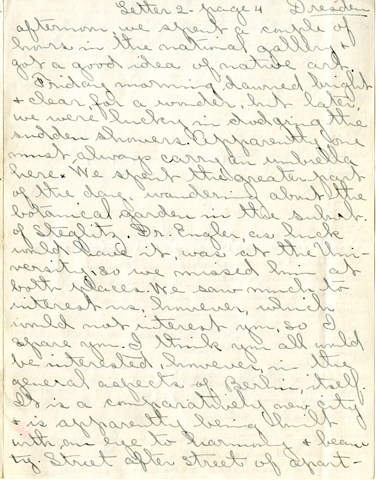 Letter 2 - page 4 Dresden
afternoon we spent a couple of
hours in the national gallery &
got a good idea of native art.
Friday morning dawned bright
& clear for a wonder, but later
we were lucky in dodging the
sudden showers. Apparently one
must always carry an umbrella
here. We spent the greater part
of the day, wandering about the
botanical garden in the suburb
of Steglitz. Dr. Engler, as luck
would have it, was at the Uni-
versity, so we missed him at
both places. We saw much to
interest us, however, which
would not interest you, so I
spare you. I think you all would
be interested, however, in the
general aspects of Berlin, itself.
It is a comparatively new city
& is apparently being built
with an eye to harmony & beau
ty. Street after street of apart-